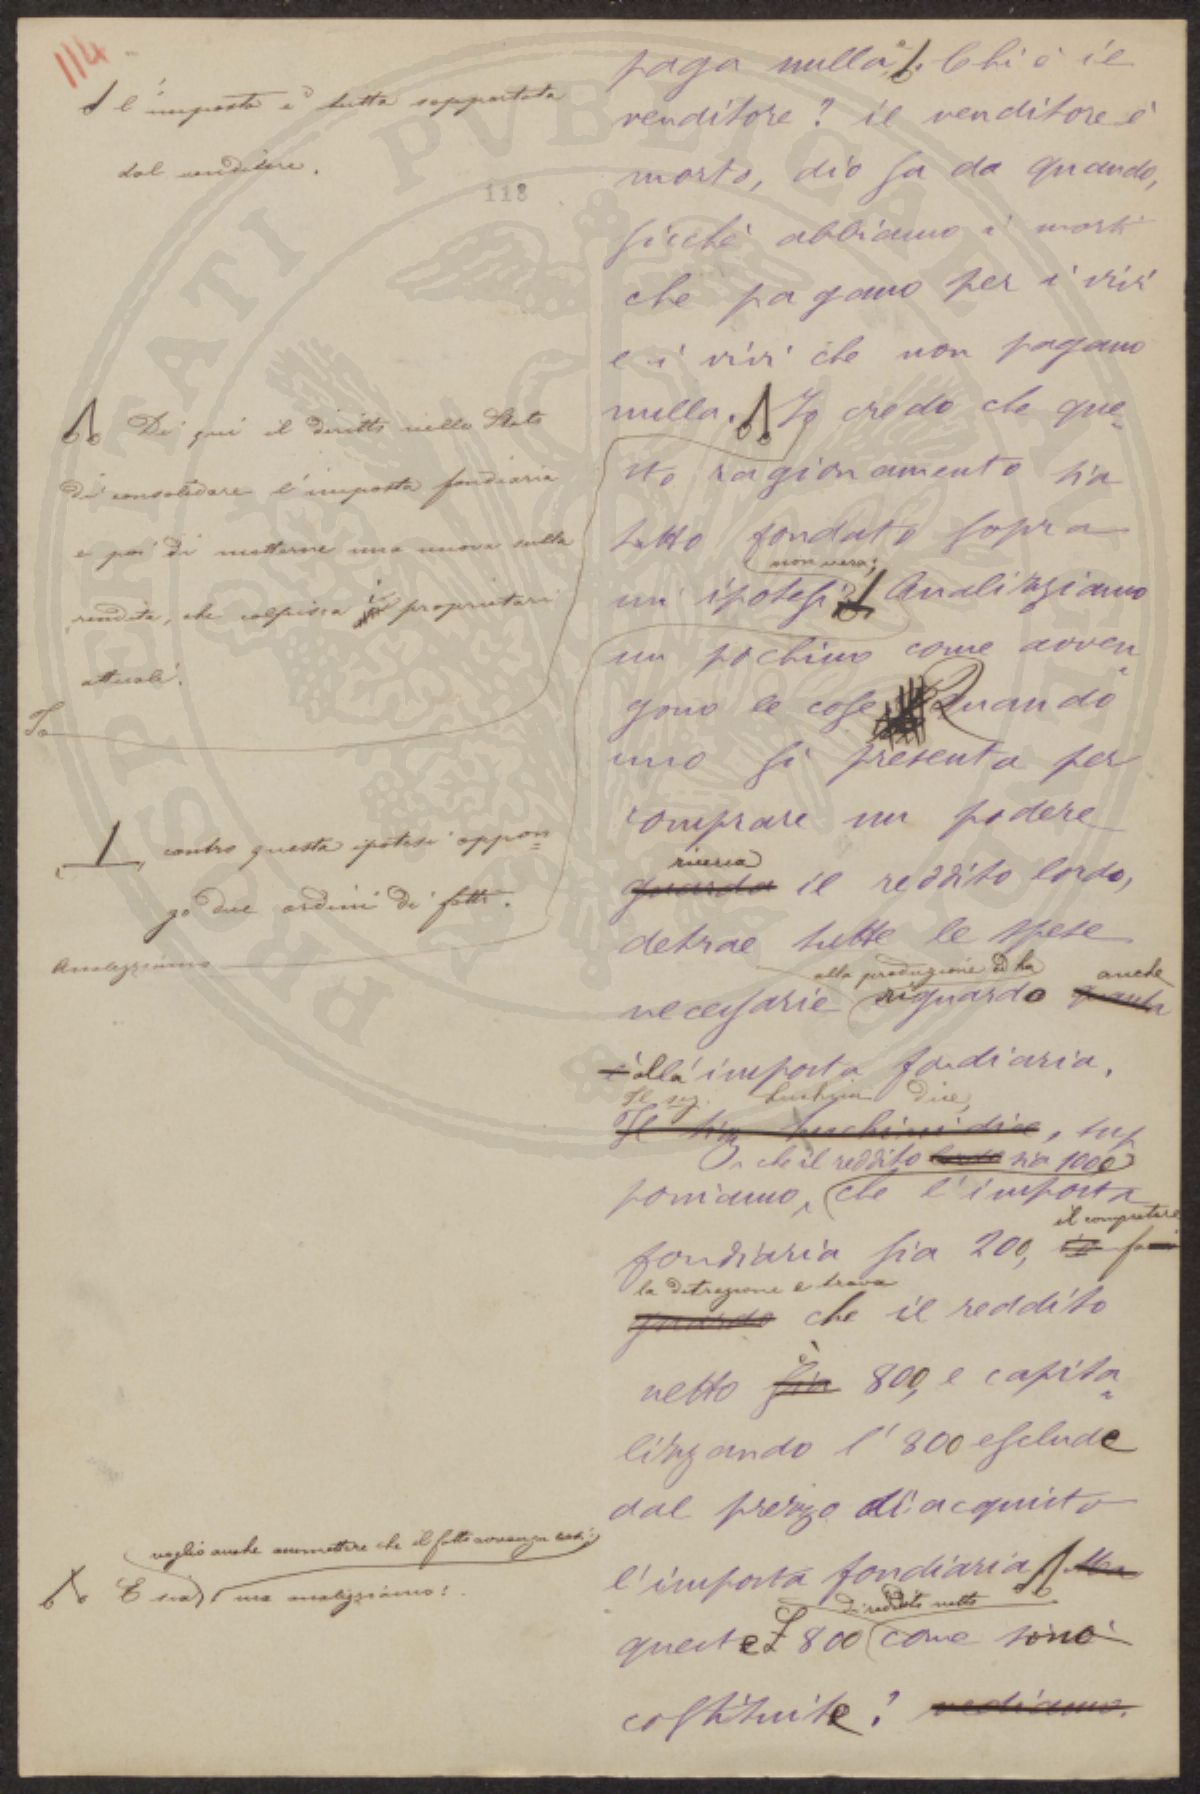 114
113
l'imposta è tutta sopportata
dal venditore.
Di qui il diritto nello Stato
di consolidare l'imposta fondiaria
e poi di metterne una nuova sulla
rendita, che colpisca i proprietari
attuali.
Io
contro questa ipotesi oppon=
go due ordini di fatti.
Analizziamo
voglio anche ammettere che il fatto avvenga così:
E sia, ma analizziamo:
paga nulla. Chi è il
venditore? il venditore è
morto, dio sa da quando,
sicchè abbiamo i morti
che pagano per i vivi
e i vivi che non pagano
nulla. Io credo che que=
sto ragionamento sia
tutto fondato sopra
non vera;
un' ipotesi Analizziamo
un pochino come avven=
gono le cose Quando
uno si presenta per
comprare un podere
ricerca
guarda il reddito lordo,
detrae tutte le spese
alla produzione ed ha anche
necessarie riguardo quanta
è all'imposta fondiaria.
Il sig. Luchini dice,
Il sig. Luchini dice, sup
che il reddito lordo sia 1000
poniamo, che l'imposta
il compratore
fondiaria sia 200, io fa
la detrazione e trova
guardo che il reddito
è
netto sia 800, e capita=
lizzando l'800 esclude
dal prezzo di acquisto
l'imposta fondiaria Ma
di reddito netto
queste £ 800 come sono
costituite? vediamo.